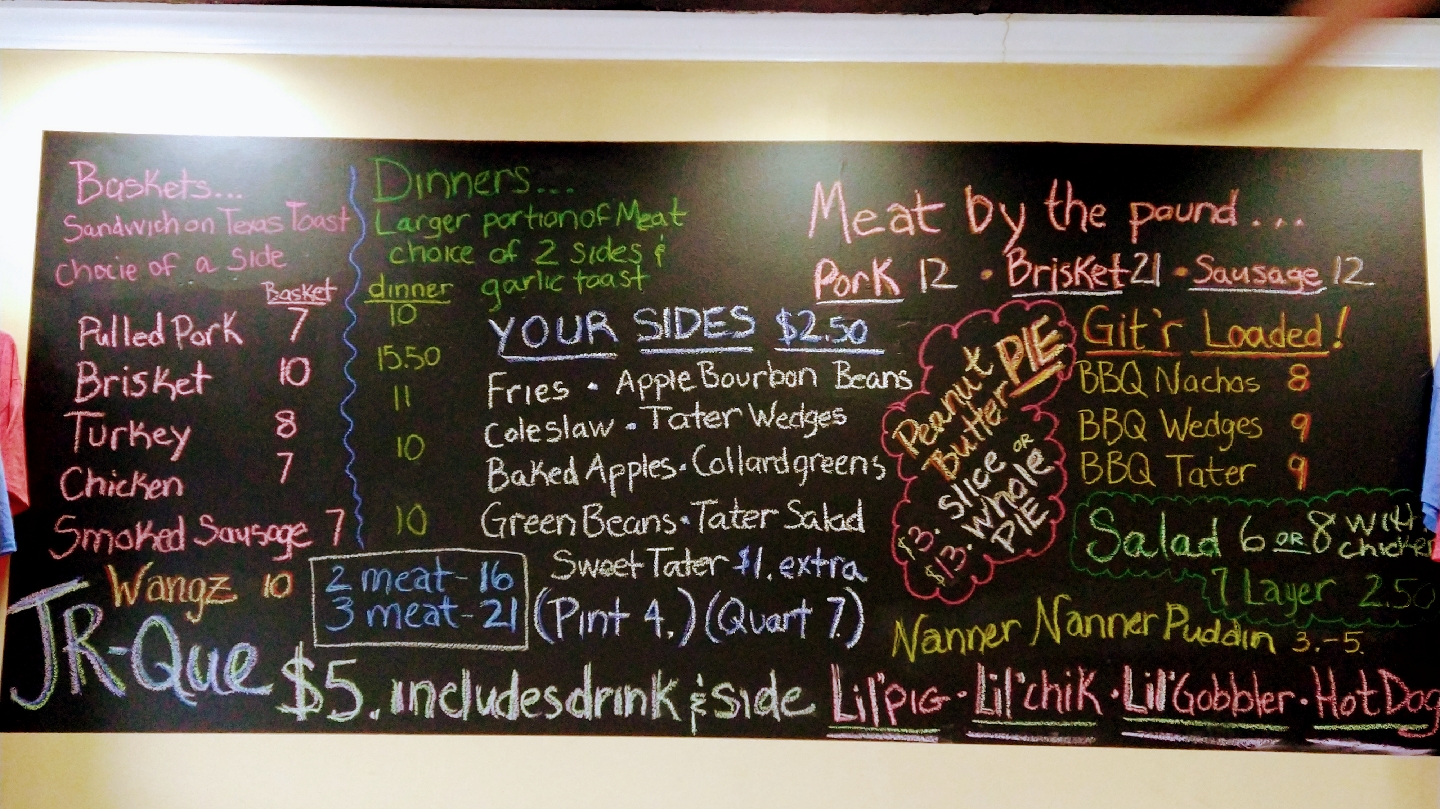 Baskets...
Sandwich on Texas Toast
chocie of a side
Basket
Pulled Pork 7
Brisket 10
Turkey 8
Chicken 7
Smoked Sausage 7
Wangz 10
Dinners...
Larger portion of Meat
choice of 2 sides &
garlic toast
dinner
10
15.50
11
10
10
2 meat-16
3 meat-21
YOUR SIDES $2.50
Fries • Apple Bourbon Beans
Coleslaw • Tater Wedges
Baked Apples • Collardgreens
Green Beans • Tater Salad
Sweet Tater $1. extra
(Pint 4.) (Quart 7.)
Meat by the pound...
Pork 12 • Brisket 21 • Sausage 12
Peanut
Butter PIE
$3. slice OR
$13. whole
PIE
Git'r Loaded!
BBQ Nachos 8
BBQ Wedges 9
BBQ Tater 9
Salad 6 OR 8 with
chicken
7 Layer 2.50
Nanner Nanner Puddin 3.-5.
JR-Que
$5. includes drink & side
Lil'PIG • Lil'chik • Lil'Gobbler • Hot Dog